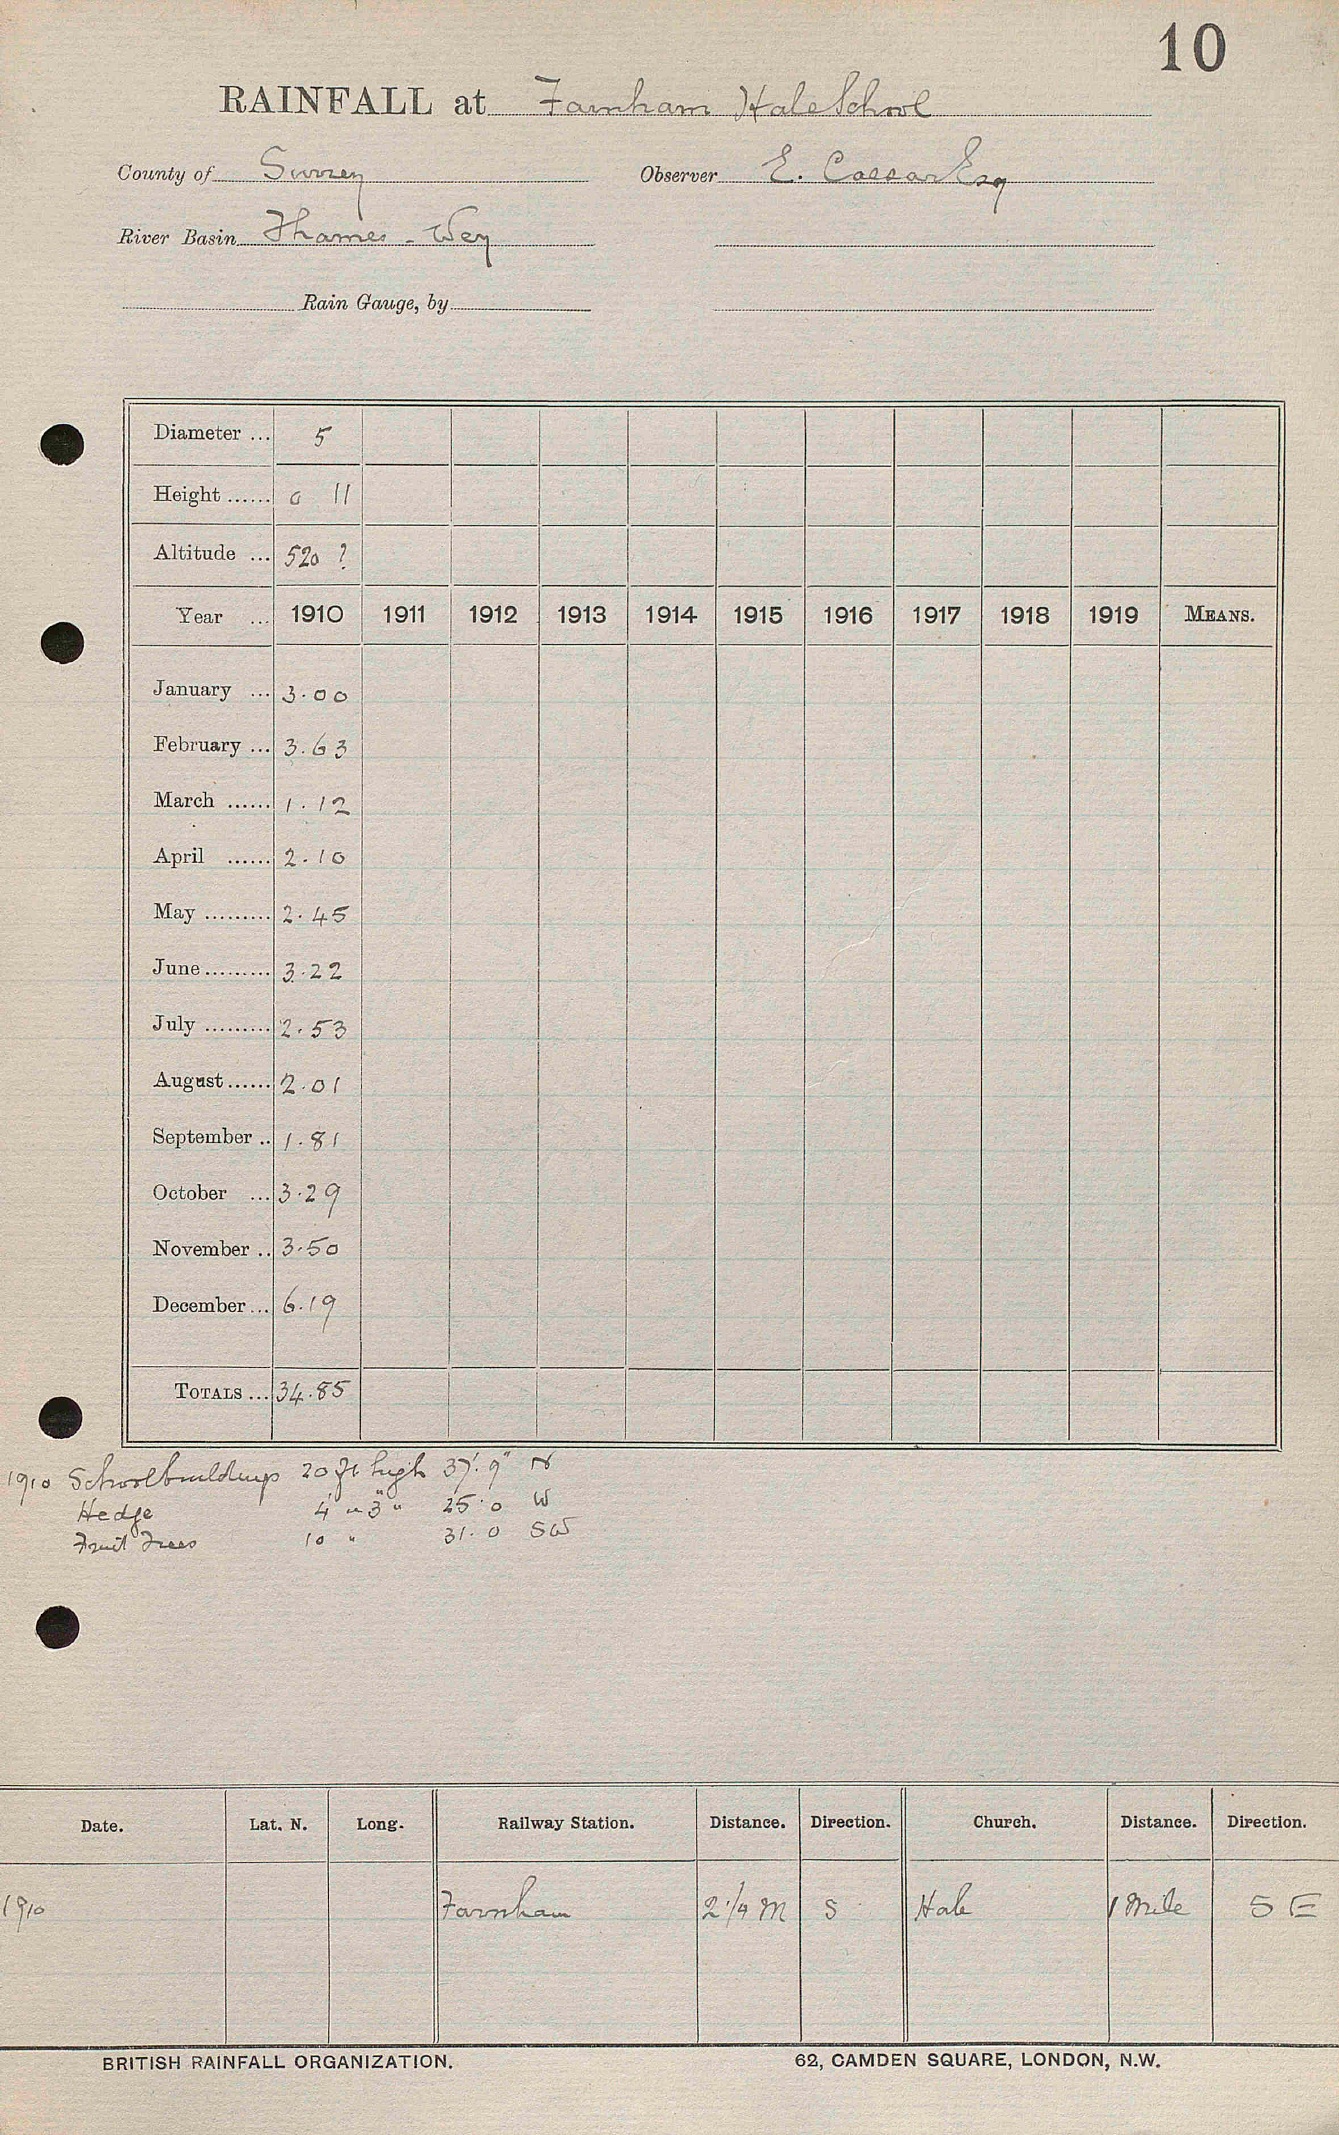 10
RAINFALL at Farnham Hale School
County of Surrey Observer E. Caesar Esq
River Basin Thames - Wey
Rain Gauge, by
Diameter ... 5
Height ...... 0 11
Altitude ... 520 ?
Year ... 1910 1911 1912 1913 1914 1915 1916 1917 1918 1919 MEANS.
January ... 3.00
February ... 3.63
March ...... 1.12
April ...... 2.10
May ......... 2.45
June ......... 3.22
July ......... 2.53
August ...... 2.01
September .. 1.81
October ... 3.29
November .. 3.50
December ... 6.19
TOTALS ... 34.85
1910 School buildings 20 ft high 37'. 9" N
Hedge 4' " 3" " 25.0 W
Fruit Trees 10 " 31.0 SW
Date. Lat. N. Long. Railway Station. Distance. Direction. Church. Distance. Direction.
1910 Farnham 2 1/4 M S Hale 1 Mile S E
BRITISH RAINFALL ORGANIZATION. 62, CAMDEN SQUARE, LONDON, N.W.